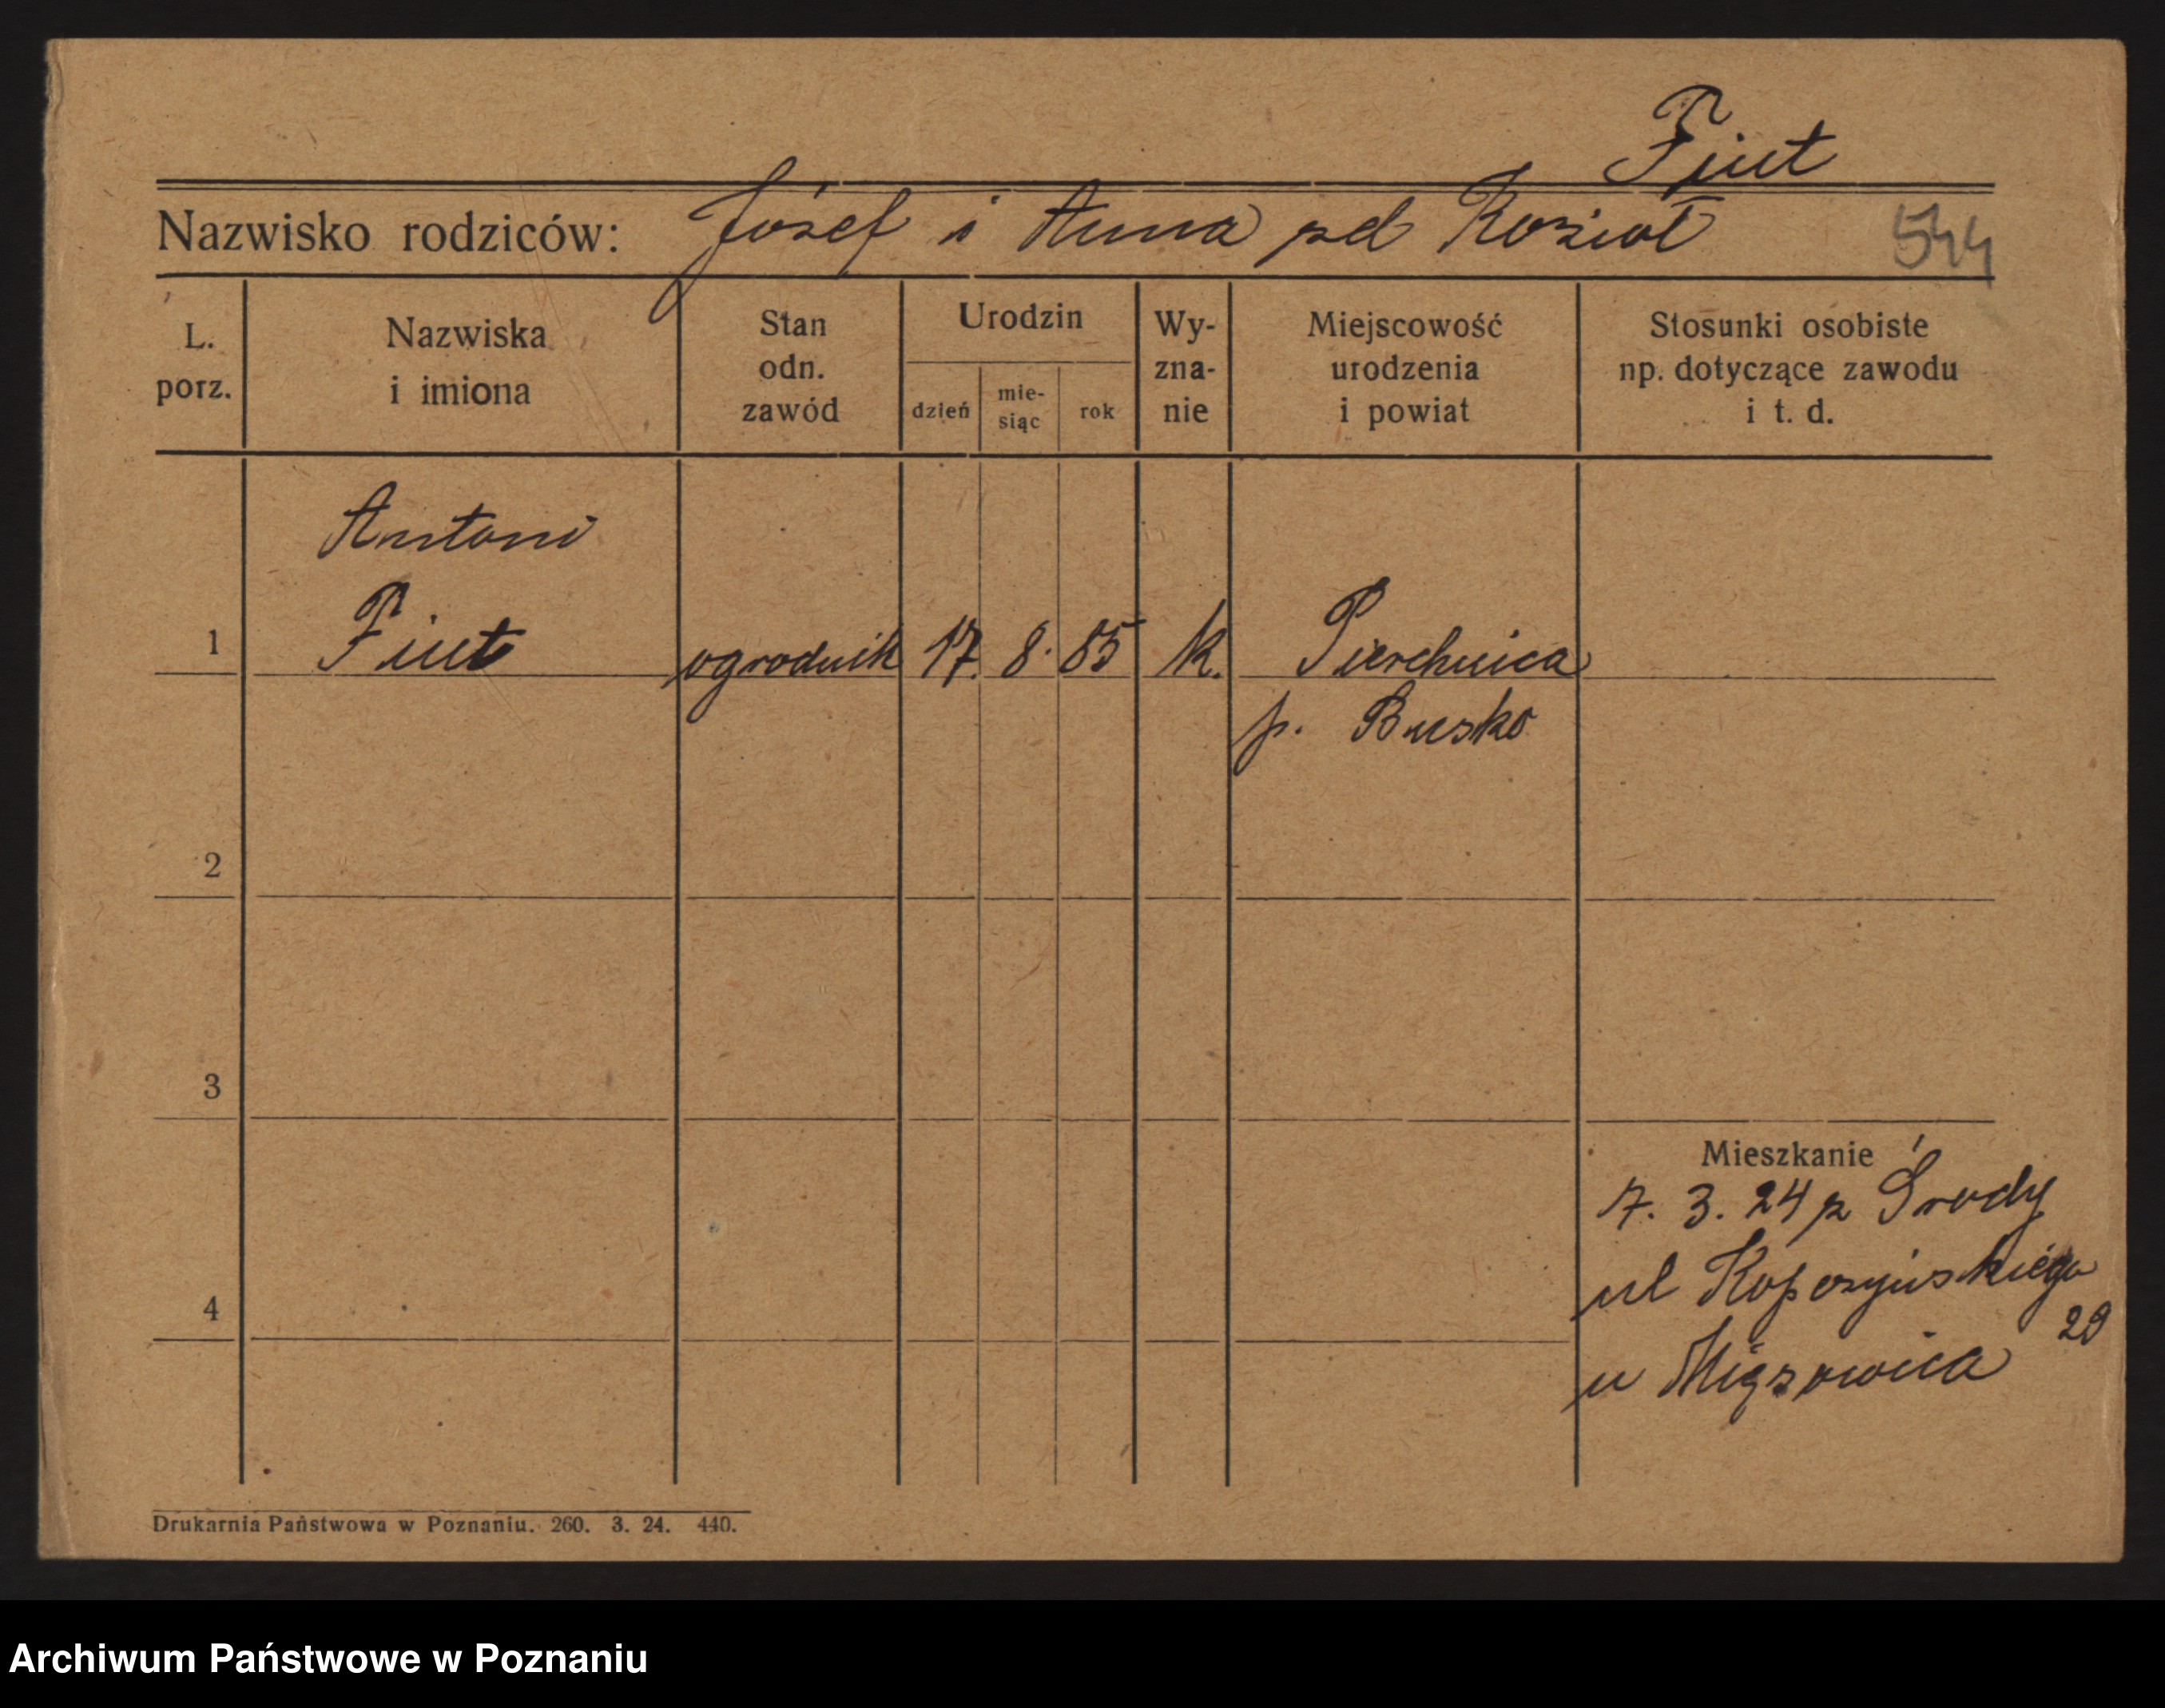 Fiut
Nazwisko rodziców: Józef i Anna zd Kozioł
544
L. porz.
Nazwiska i imiona
Stan odn. zawód
Urodzin
dzień
mie-siąc
rok
Wy-zna-nie
Miejscowość urodzenia i powiat
Stosunki osobiste np. dotyczące zawodu i t. d.
Antoni
1 Fiut ogrodnik 17. 8. 85 k. Pierchnica
p. Busko
2
3
Mieszkanie
7. 3. 24 z Środy
ul
4
29
u
Drukarnia Państwowa w Poznaniu. 260. 3. 24. 440.
Archiwum Państwowe w Poznaniu